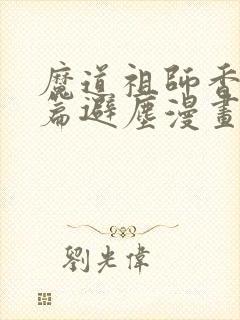 魔道祖師香
篇避塵漫畫
劉光偉